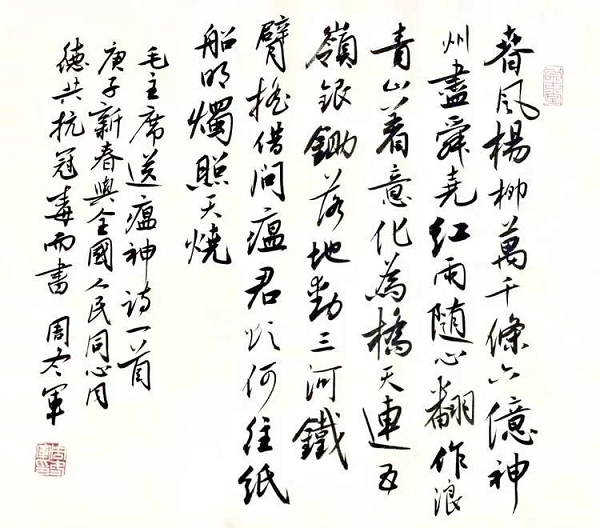 春風楊柳萬千條六億神
州盡舜堯紅雨随心翻作浪
青山着意化為橋天連五
嶺銀鋤落地動三河鐵
臂摇借問瘟君欲何往紙
船明燭照天燒
毛主席送瘟神诗一首
庚子新春與全國人民同心同
德共抗冠毒而書 周冬軍